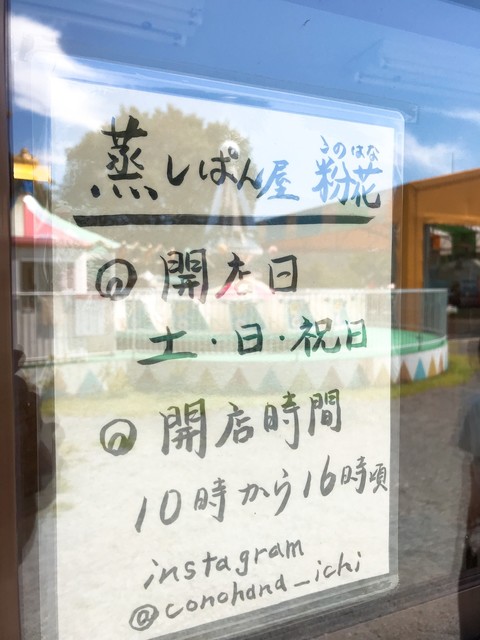 蒸しぱん屋 粉花
このはな
の 開店日
土・日・祝日
の 開店時間
10時から16時頃
instagram
@conohana_ichi